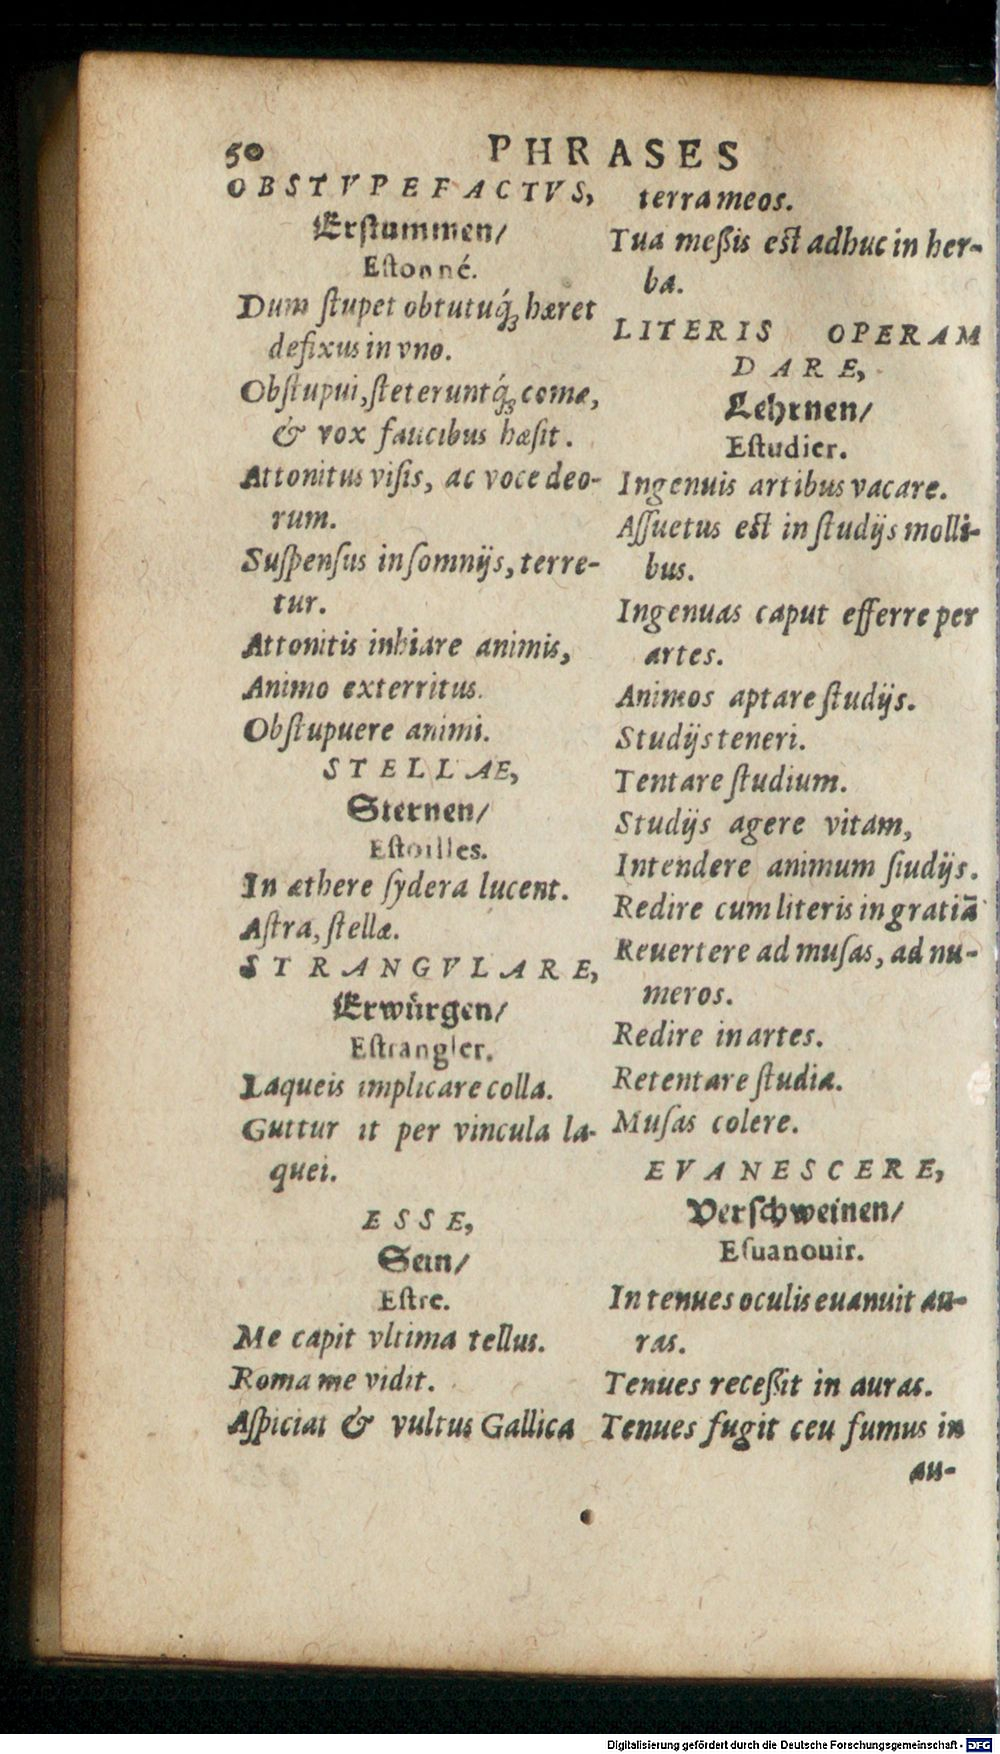 50 PHRASES
OBSTVPEFACTVS,
Erſtummen/
Eſtonné.
Dum ſtupet obtutuq́ꝫ hæret
defixus in vno.
Obſtupui, ſteteruntq́ꝫ comæ,
& vox faucibus hæſit.
Attonitus viſis, ac voce deo-
rum.
Suſpenſus inſomnijs, terre-
tur.
Attonitis inhiare animis,
Animo exterritus.
Obſtupuere animi.
STELLAE,
Sternen/
Eſtoilles.
In æthere ſydera lucent.
Aſtra, ſtellæ.
STRANGVLARE,
Erwürgen/
Eſtrangler.
Laqueis implicare colla.
Guttur it per vincula la-
quei.
ESSE,
Sein/
Eſtre.
Me capit vltima tellus.
Roma me vidit.
Aſpiciat & vultus Gallica
terra meos.
Tua meßis eſt adhuc in her-
ba.
LITERIS OPERAM
DARE,
Lehrnen/
Eſtudier.
Ingenuis artibus vacare.
Aſſuetus eſt in ſtudijs molli-
bus.
Ingenuas caput efferre per
artes.
Animos aptare ſtudijs.
Studijs teneri.
Tentare ſtudium.
Studijs agere vitam,
Intendere animum ſtudijs.
Redire cum literis in gratiā
Reuertere ad muſas, ad nu-
meros.
Redire in artes.
Retentare ſtudia.
Muſas colere.
EVANESCERE,
Verſchweinen/
Eſuanouir.
In tenues oculis euanuit au-
ras.
Tenues receßit in auras.
Tenues fugit ceu fumus in
au-
Digitalisierung gefördert durch die Deutsche Forschungsgemeinschaft - DFG